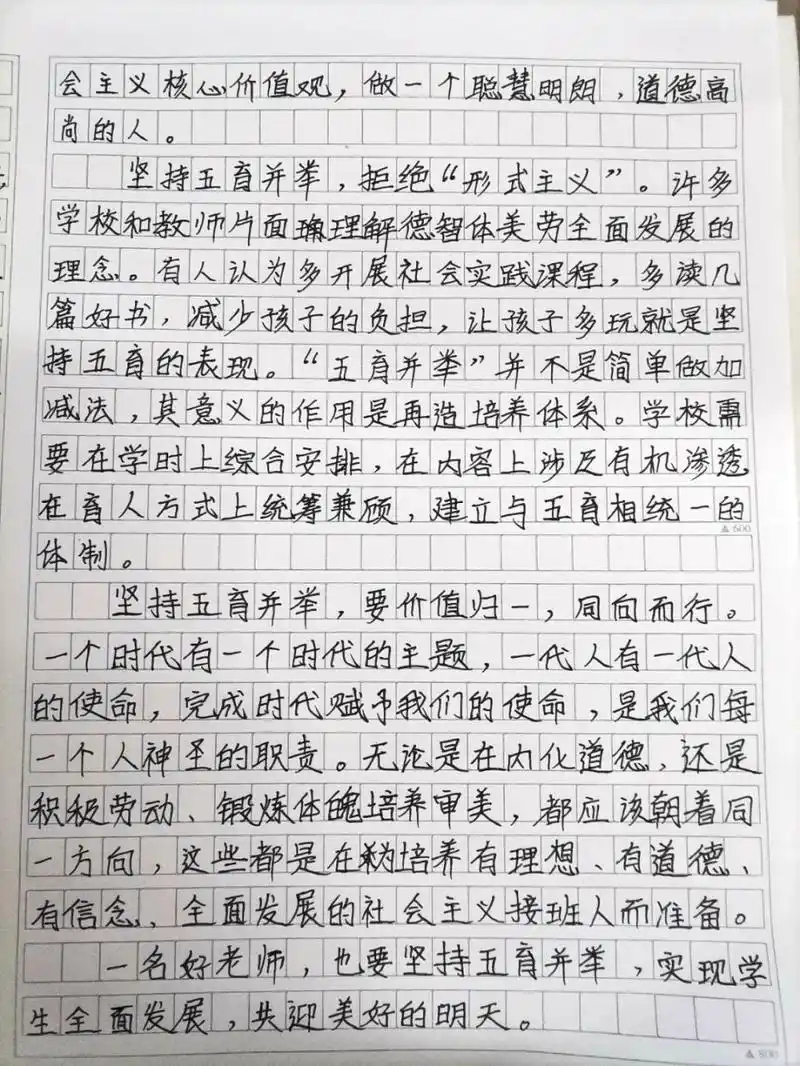 会主义核心价值观，做一个聪慧明朗，道德高
尚的人。
坚持五育并举，拒绝“形式主义”。许多
学校和教师片面理解德智体美劳全面发展的
理念。有人认为多开展社会实践课程，多读几
篇好书，减少孩子的负担，让孩子多玩就是坚
持五育的表现。“五育并举”并不是简单做加
减法，其意义的作用是再造培养体系。学校需
要在学时上综合安排，在内容上涉及有机渗透
在育人方式上统筹兼顾，建立与五育相统一的
▲600
体制。
坚持五育并举，要价值归一，同向而行。
一个时代有一个时代的主题，一代人有一代人
的使命，完成时代赋予我们的使命，是我们每
一个人神圣的职责。无论是在内化道德、还是
积极劳动、锻炼体魄培养审美，都应该朝着同
一方向，这些都是在为培养有理想、有道德、
有信念、全面发展的社会主义接班人而准备。
一名好老师，也要坚持五育并举，实现学
生全面发展，共迎美好的明天。
▲800